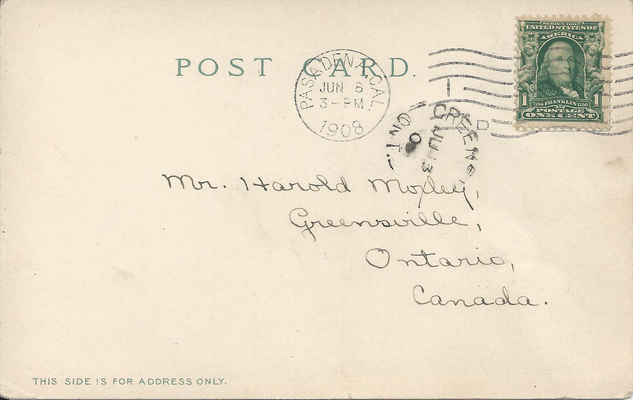 POST CARD.
PASADENA, CAL
JUN 8
3-PM
1908
SERIES 1902
UNITED STATES OF
AMERICA
1 FRANKLIN 1
POSTAGE
ONE CENT
GREENS
ONT.
Mr. Harold Moxley,
Greensville,
Ontario,
Canada.
THIS SIDE IS FOR ADDRESS ONLY.